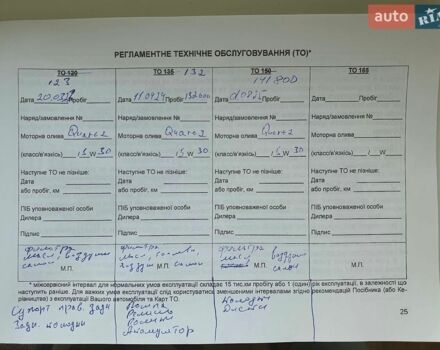 auto RIA
РЕГЛАМЕНТНЕ ТЕХНІЧНЕ ОБСЛУГОВУВАННЯ (ТО)*
ТО 120 123
ТО 135 132
ТО 150 141 800
ТО 165
Дата Пробіг
Дата 11.04.24 Пробіг 132000
Дата Пробіг
Дата Пробіг
Наряд/замовлення №
Наряд/замовлення №
Наряд/замовлення №
Наряд/замовлення №
Моторна олива Quarz
Моторна олива Quarz
Моторна олива Quarz
Моторна олива
(класс/в'язкість) 15 W 30
(класс/в'язкість) 15 W 30
(класс/в'язкість) 15 W 30
(класс/в'язкість) / W
Наступне ТО не пізніше:
Наступне ТО не пізніше:
Наступне ТО не пізніше:
Наступне ТО не пізніше:
Дата
Дата
Дата
Дата
або пробіг, км
або пробіг, км
або пробіг, км
або пробіг, км
ПІБ уповноваженої особи
ПІБ уповноваженої особи
ПІБ уповноваженої особи
ПІБ уповноваженої особи
Дилера
Дилера
Дилера
Дилера
Підпис
Підпис
Підпис
Підпис
фильтра
фильтра
фильтра
М.П.
М.П.
М.П.
М.П.
* міжсервісний інтервал для нормальних умов експлуатації складає 15 тис.км пробігу або 1 (один) рік експлуатації, в залежності що
наступить раніше. Для важких умов експлуатації слід користуватись зменшеними інтервалами згідно рекомендацій Посібника (або Ке-
рівництва) з експлуатації Вашого автомобіля та Карт ТО.
Суппорт прав. задн
Задн. колодки
Помпа
Ролики
Ремни
Аккумулятор
Колодки
Диски
25